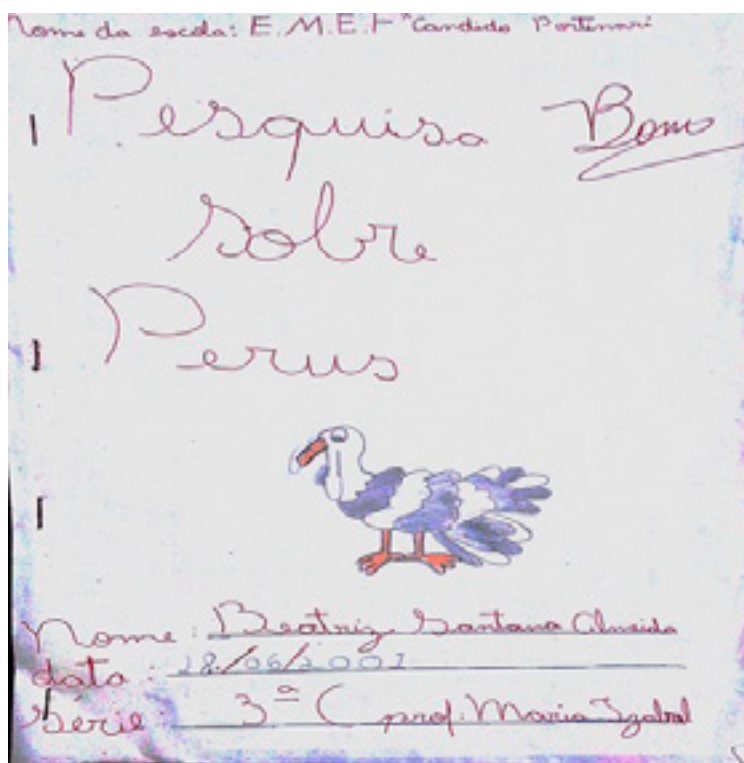 Nome da escola: E.M.E.F "Candido Portinari
Pesquisa Bom
sobre
Perus
Nome: Beatriz Santana Almeida
data: 28/06/2001
Série: 3ª C prof. Maria Izabel